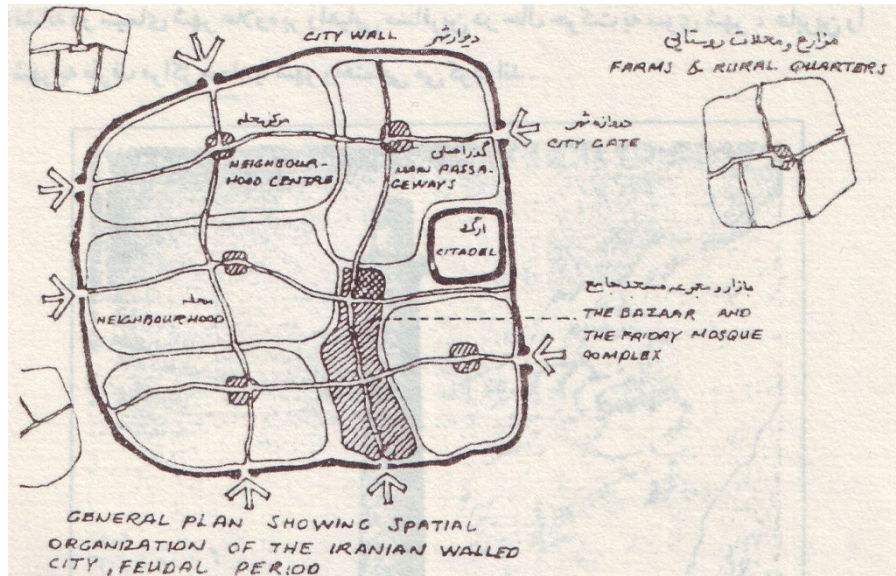 CITY WALL دیوار شهر
مزارع و محلات روستایی
FARMS & RURAL QUARTERS
مرکز محله
NEIGHBOUR-
HOOD CENTRE
گذر اصلی
MAIN PASSA-
GEWAYS
دروازه شهر
CITY GATE
ارگ
CITADEL
محله
NEIGHBOURHOOD
بازار و مجموعه مسجد جامع
THE BAZAAR AND
THE FRIDAY MOSQUE
COMPLEX
GENERAL PLAN SHOWING SPATIAL
ORGANIZATION OF THE IRANIAN WALLED
CITY, FEUDAL PERIOD